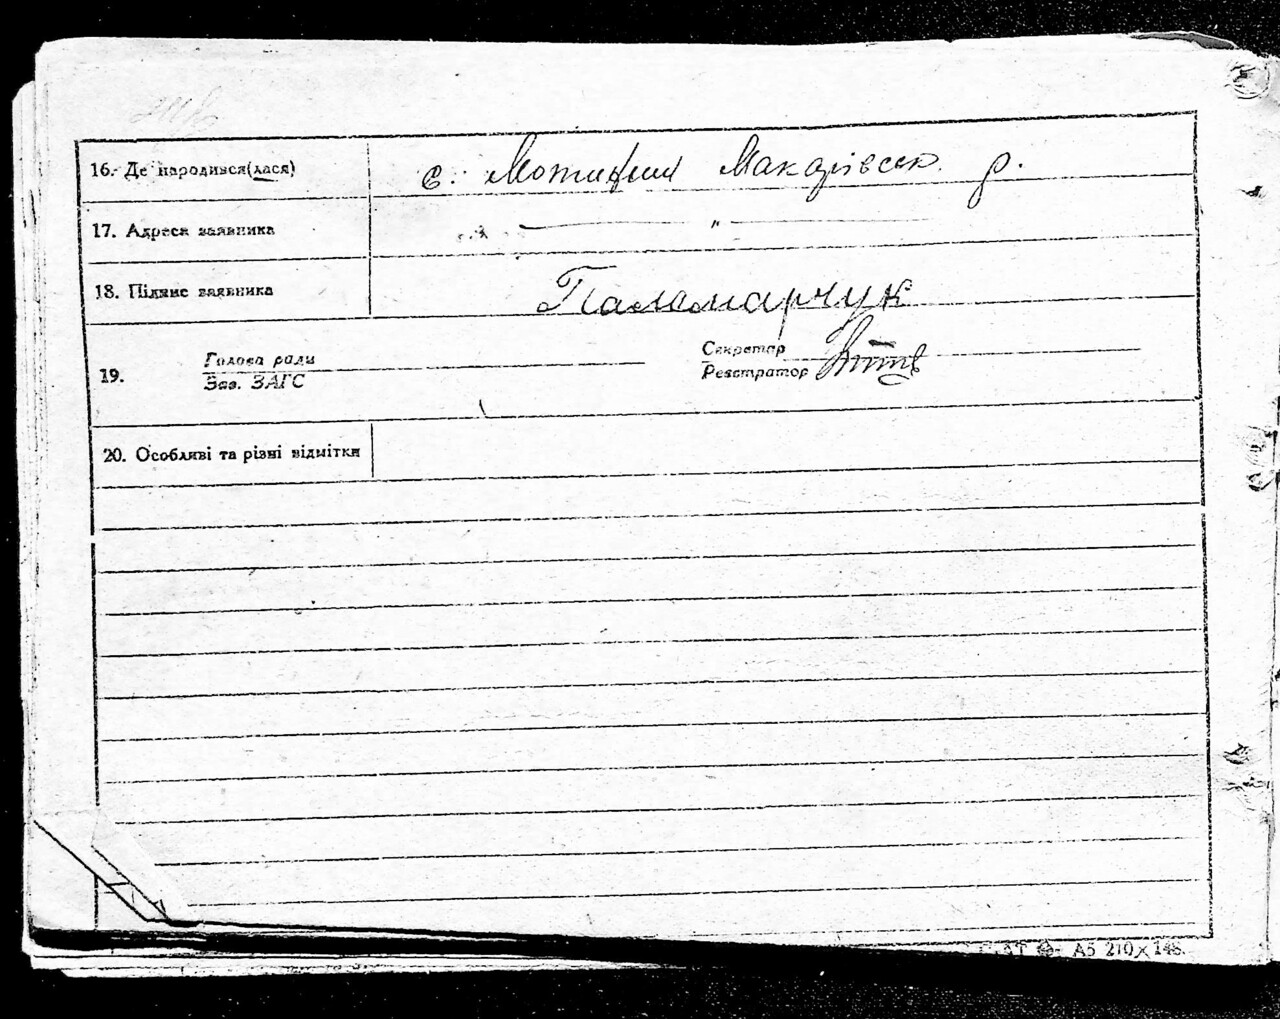 16. Де народився(лася) с. Мотижин Макарівськ. р.
17. Адреса заявника — " —
18. Підпис заявника Паламарчук
19. Голова ради Секретар
Зав. ЗАГС Реєстратор
20. Особливі та різні відмітки
А5 210×148.